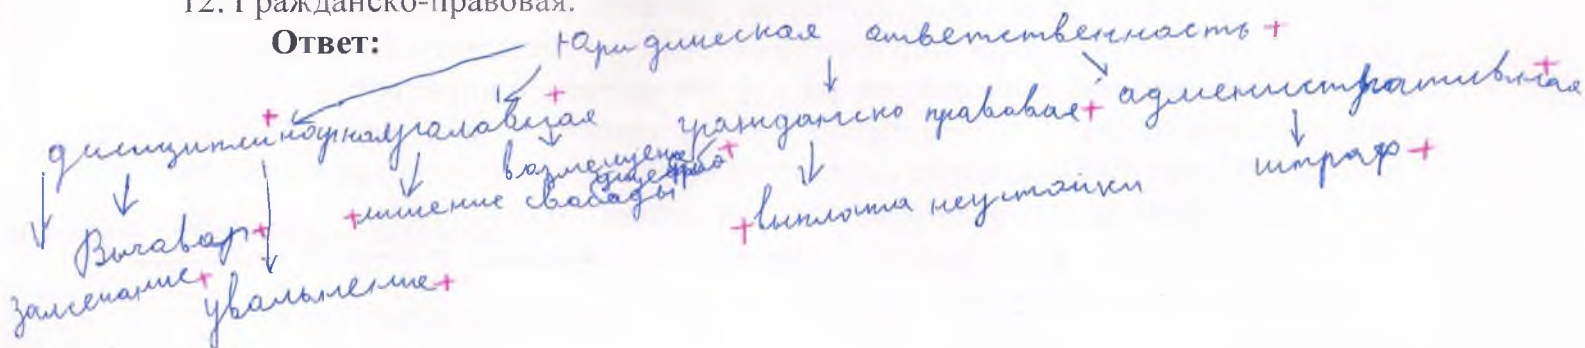 12. Гражданско-правовая.
Ответ:
Юридическая ответственность +
дисциплинарная + уголовная + гражданско правовая + административная +
возмещение + штраф +
+ лишение свободы
+ выплата неустойки
Выговар +
замечание +
увальнение +